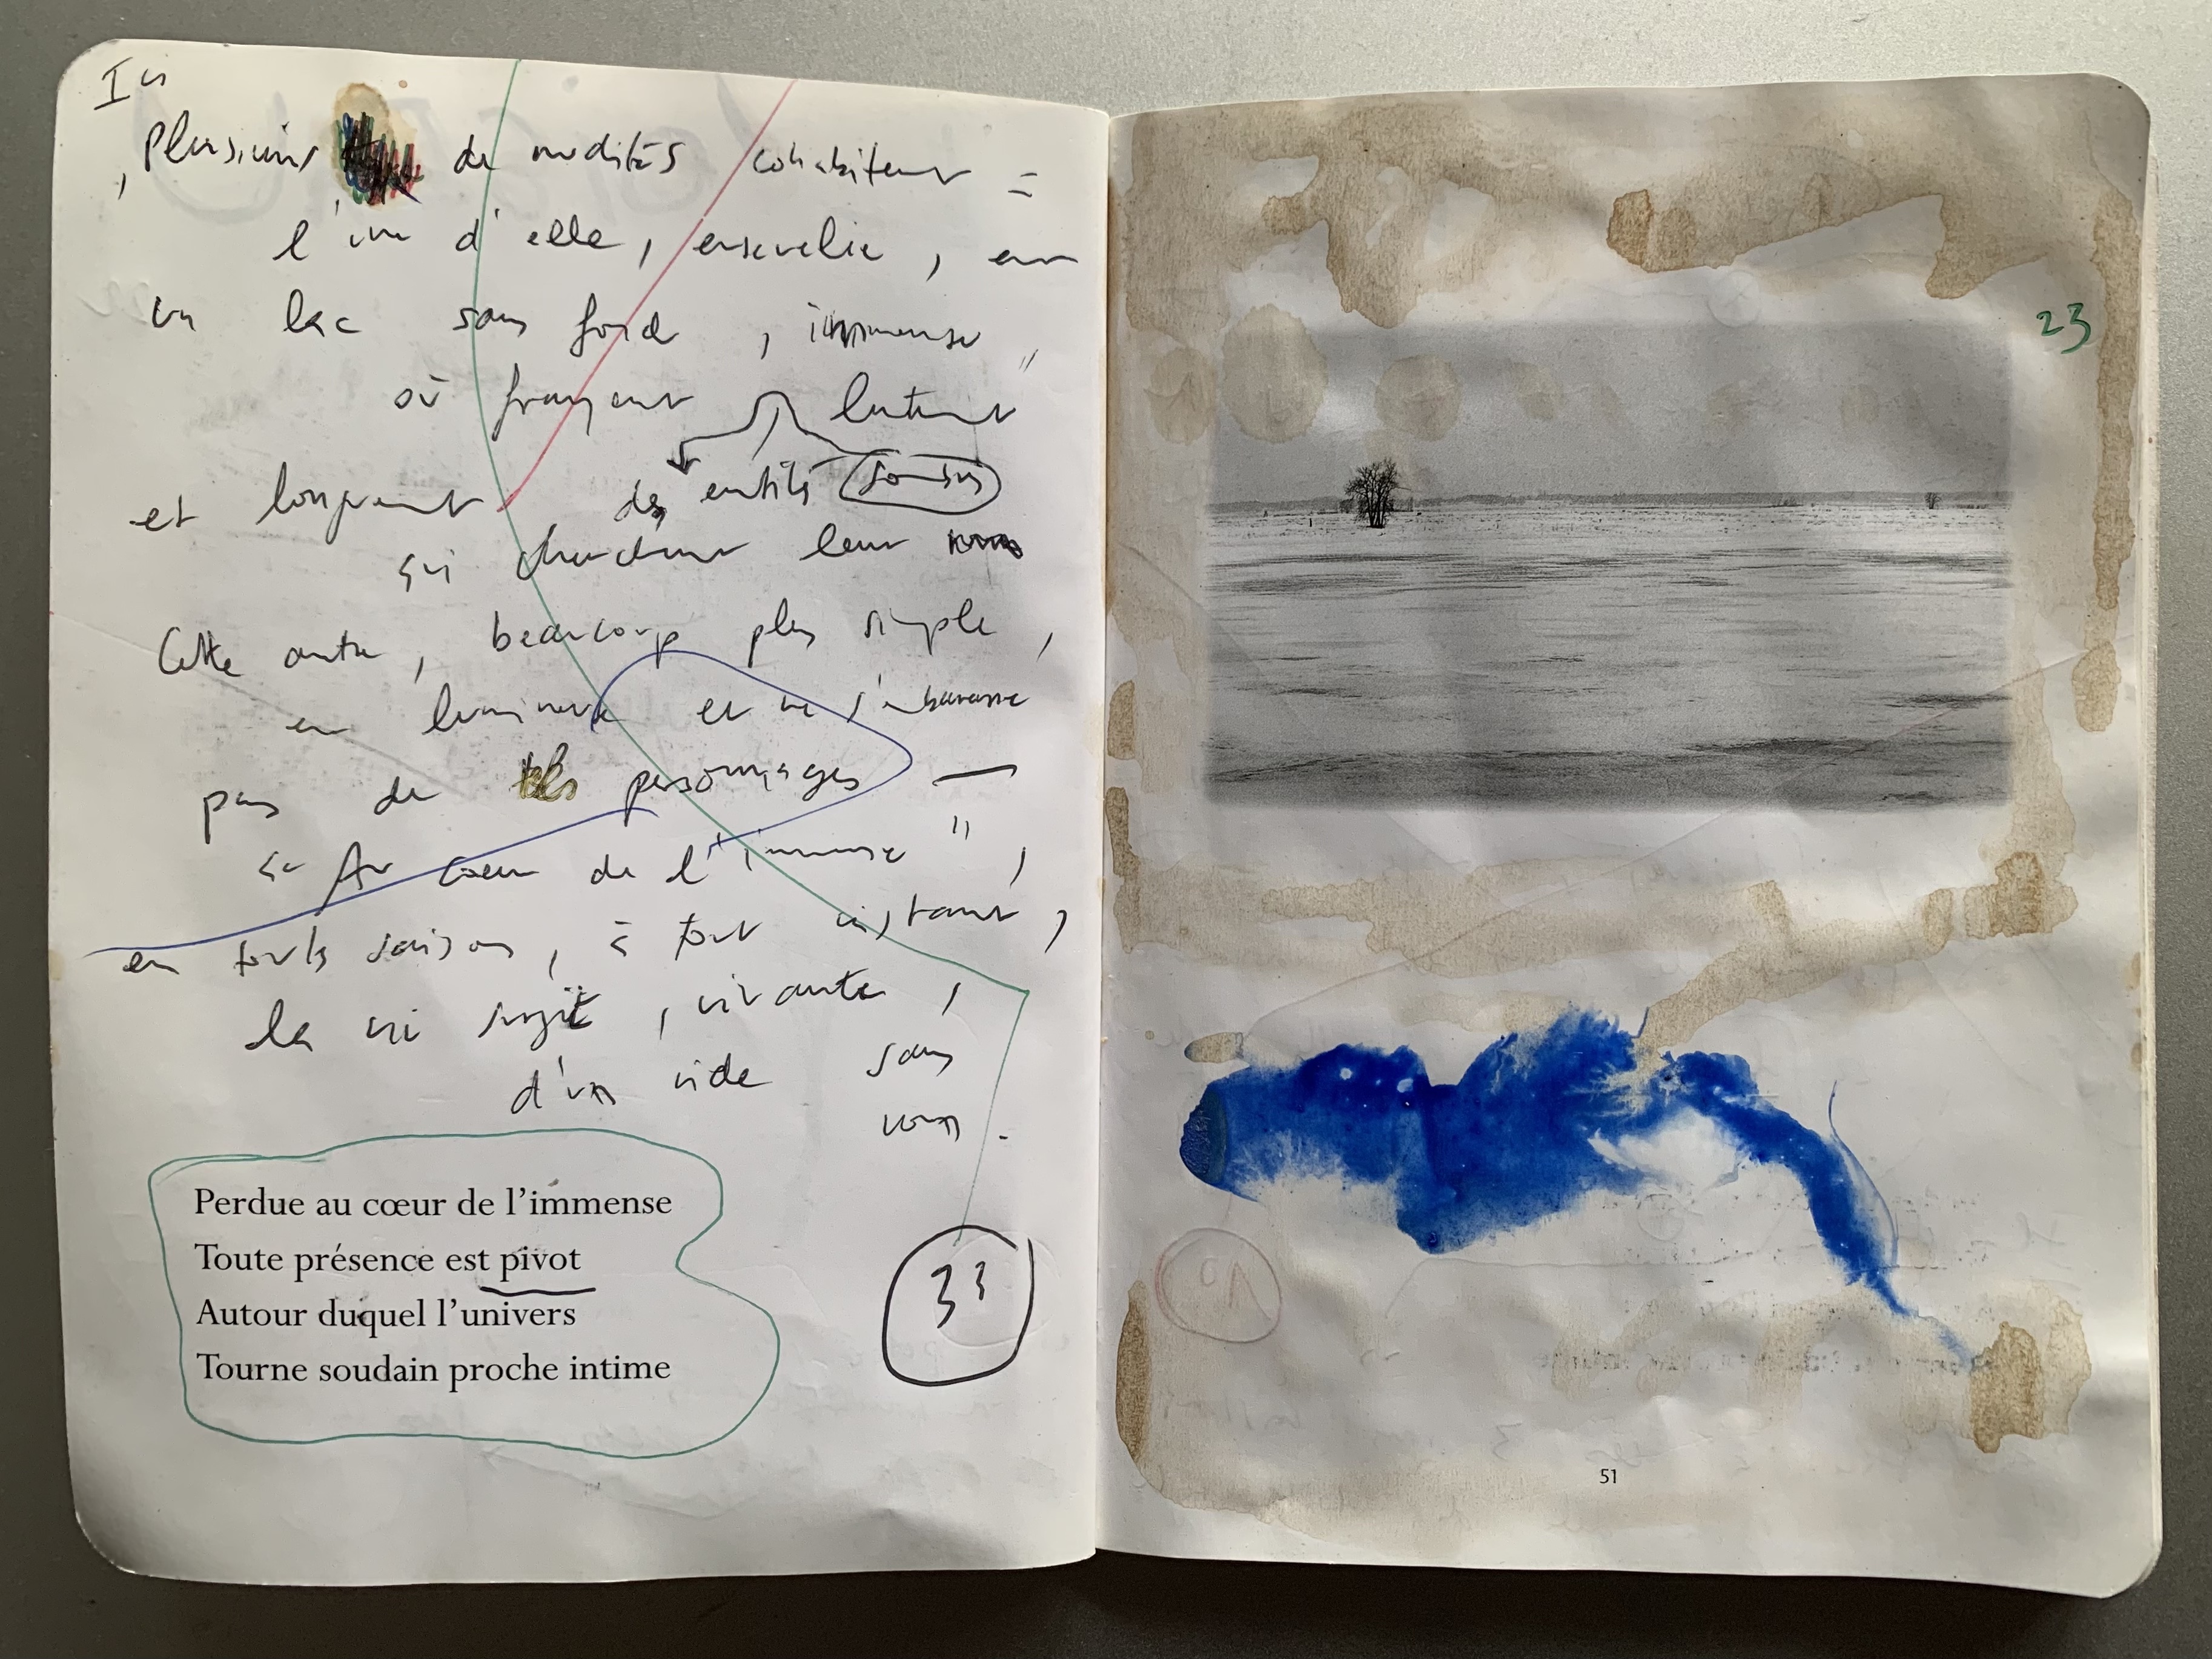 Ici
, plusieurs de nudités cohabitent =
l'une d'elle, ensevelie, est
un lac sans fond, immense
où frayent luttent
et longent des entités
qui cherchent leur nom
Cette autre, beaucoup plus simple,
est lumineuse et ne s'embarrasse
pas de tels personnages —
" Au cœur de l'immense ",
en toute saison, à tout instant,
la vie, vivante,
d'un vide sans
nom.
Perdue au cœur de l'immense
Toute présence est pivot
Autour duquel l'univers
Tourne soudain proche intime
33
23
10
51